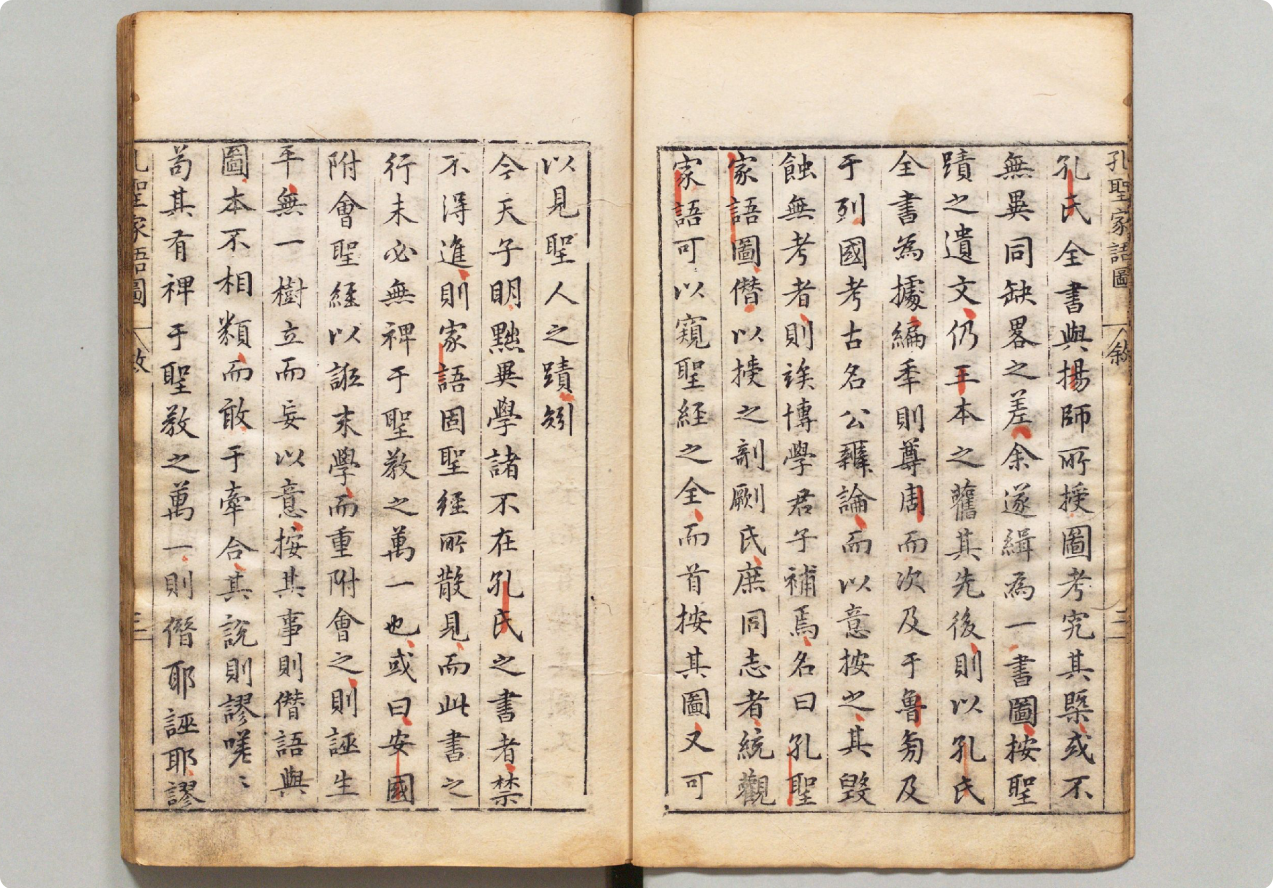 孔聖家語圖
敘
三
孔氏全書與楊師所授圖考究其槩或不
無異同缺畧之差余遂緝為一書圖按聖
蹟之遺文仍王本之舊其先後則以孔氏
全書為據編年則尊周而次及于魯旁及
于列國考古名公辯論而以意按之其毀
蝕無考者則竢博學君子補焉名曰孔聖
家語圖僭以授之剞劂氏庶同志者統觀
家語可以窺聖經之全而首按其圖又可
以見聖人之蹟矧
今天子明黜異學諸不在孔氏之書者禁
不得進則家語固聖經所散見而此書之
行未必無裨于聖教之萬一也或曰安國
附會聖經以誑末學而重附會之則誣生
平無一樹立而妄以意按其事則僭語與
圖本不相類而敢于牽合其說則謬嗟〻
苟其有裨于聖教之萬一則僭耶誣耶謬
孔聖家語圖
敘
三